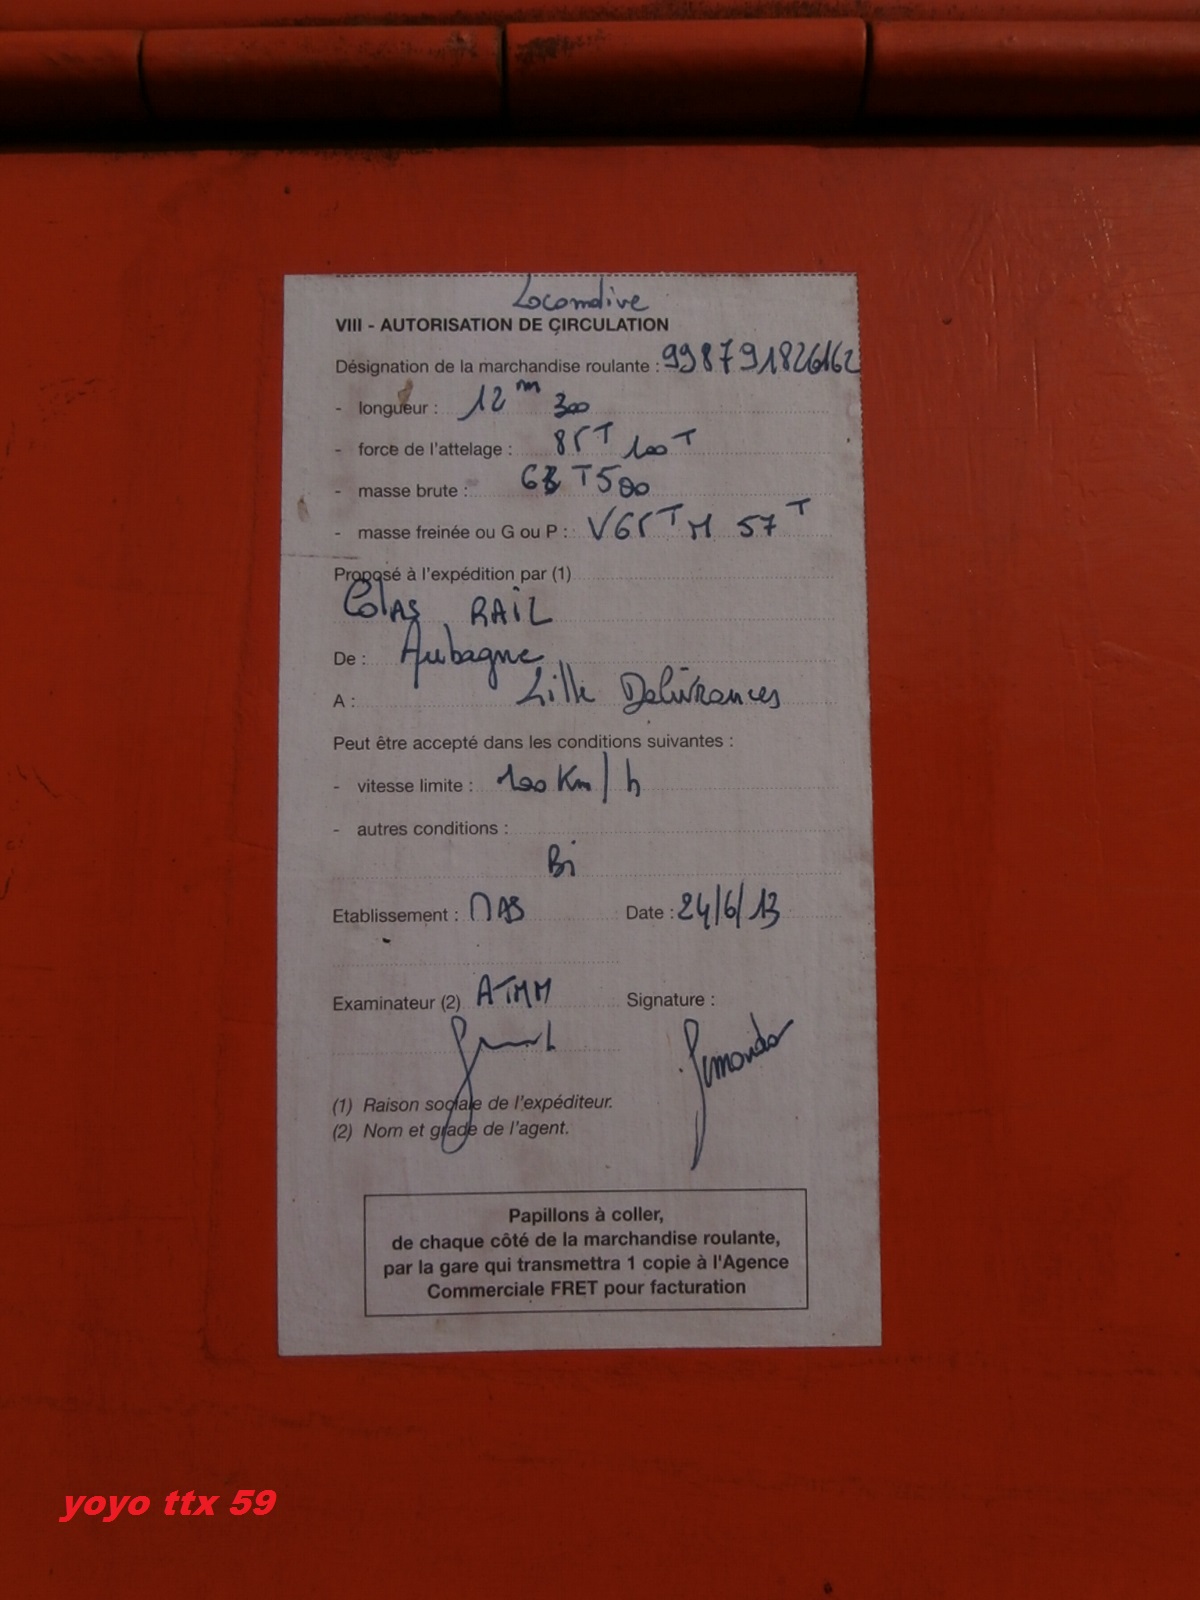 Locomotive
VIII - AUTORISATION DE CIRCULATION
Désignation de la marchandise roulante : 998791826162
- longueur : 12m 300
- force de l'attelage : 85T 100T
- masse brute : T500
- masse freinée ou G ou P : V65T M 57T
Proposé à l'expédition par (1)
Colas RAiL
De : Aubagne
A : Lille Delivrances
Peut être accepté dans les conditions suivantes :
- vitesse limite : 100 Km/h
- autres conditions :
Bi
Etablissement : MAS Date : 24/6/13
Examinateur (2) ATMM Signature :
(1) Raison sociale de l'expéditeur.
(2) Nom et grade de l'agent.
Papillons à coller,
de chaque côté de la marchandise roulante,
par la gare qui transmettra 1 copie à l'Agence
Commerciale FRET pour facturation
yoyo ttx 59